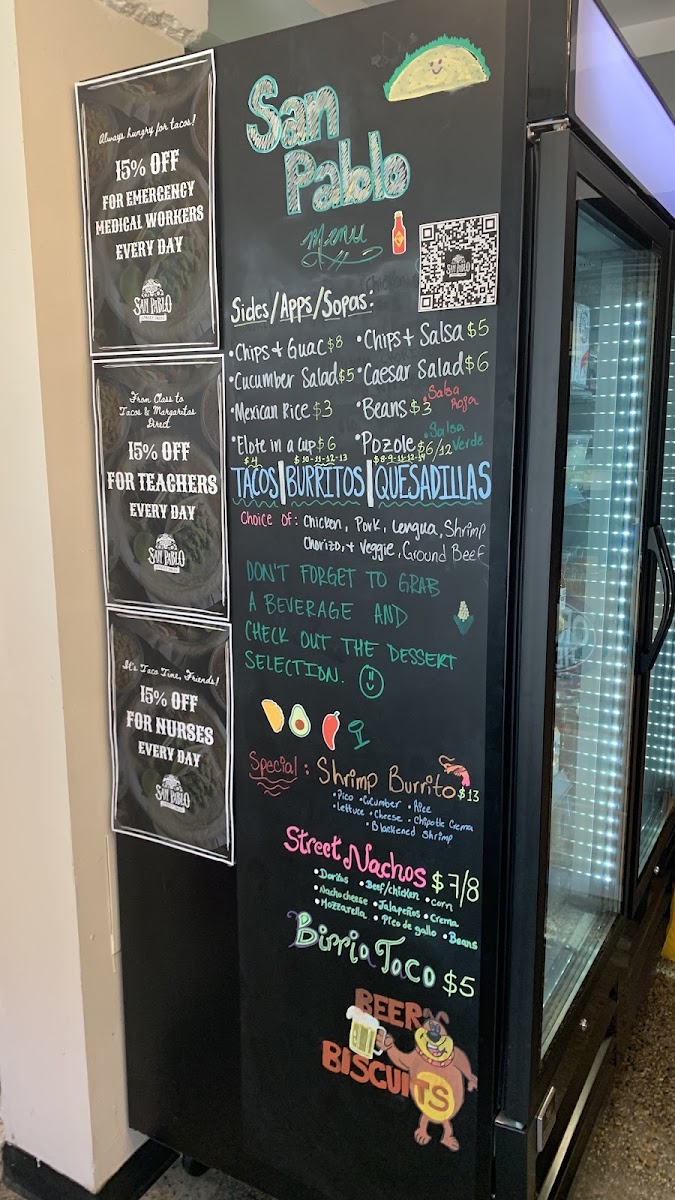 Always hungry for tacos!
15% OFF
FOR EMERGENCY
MEDICAL WORKERS
EVERY DAY
SAN PABLO
STREET TACOS
From Class to
Tacos & Margaritas
Direct
15% OFF
FOR TEACHERS
EVERY DAY
SAN PABLO
It's Taco Time, Friends!
15% OFF
FOR NURSES
EVERY DAY
SAN PABLO
San
Pablo
Menu
SAN PABLO
Sides/Apps/Sopas:
•Chips + Guac $8 •Chips + Salsa $5
•Cucumber Salad $5 •Caesar Salad $6
•Mexican Rice $3 •Beans $3 •Salsa Roja
•Elote in a cup $6 •Pozole $6/12 •Salsa Verde
$4 $10-11-12-13
TACOS|BURRITOS|QUESADILLAS
Choice of: Chicken, Pork, Lengua, Shrimp
Chorizo, + Veggie, Ground Beef
DON'T FORGET TO GRAB
A BEVERAGE AND
CHECK OUT THE DESSERT
SELECTION.
Special: Shrimp Burrito $13
•Pico •Cucumber •Rice
•Lettuce •Cheese •Chipotle Crema
•Blackened Shrimp
Street Nachos $7/8
•Doritos •Beef/chicken •Corn
•Nacho cheese •Jalapeños •Crema
•Mozzarella •Pico de gallo •Beans
Birria Taco $5
BEER
BISCUITS